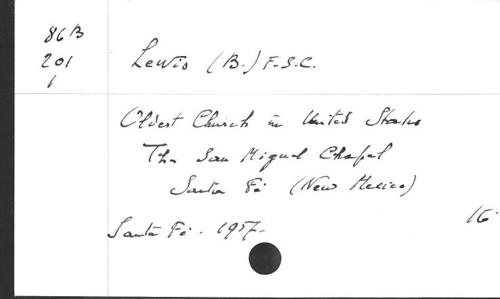 86 B
201
1
Lewis (B.) F.S.C.
Oldest Church in United States
The San Miguel Chapel
Santa Fé (New Mexico)
16°
Santa Fé - 1957-